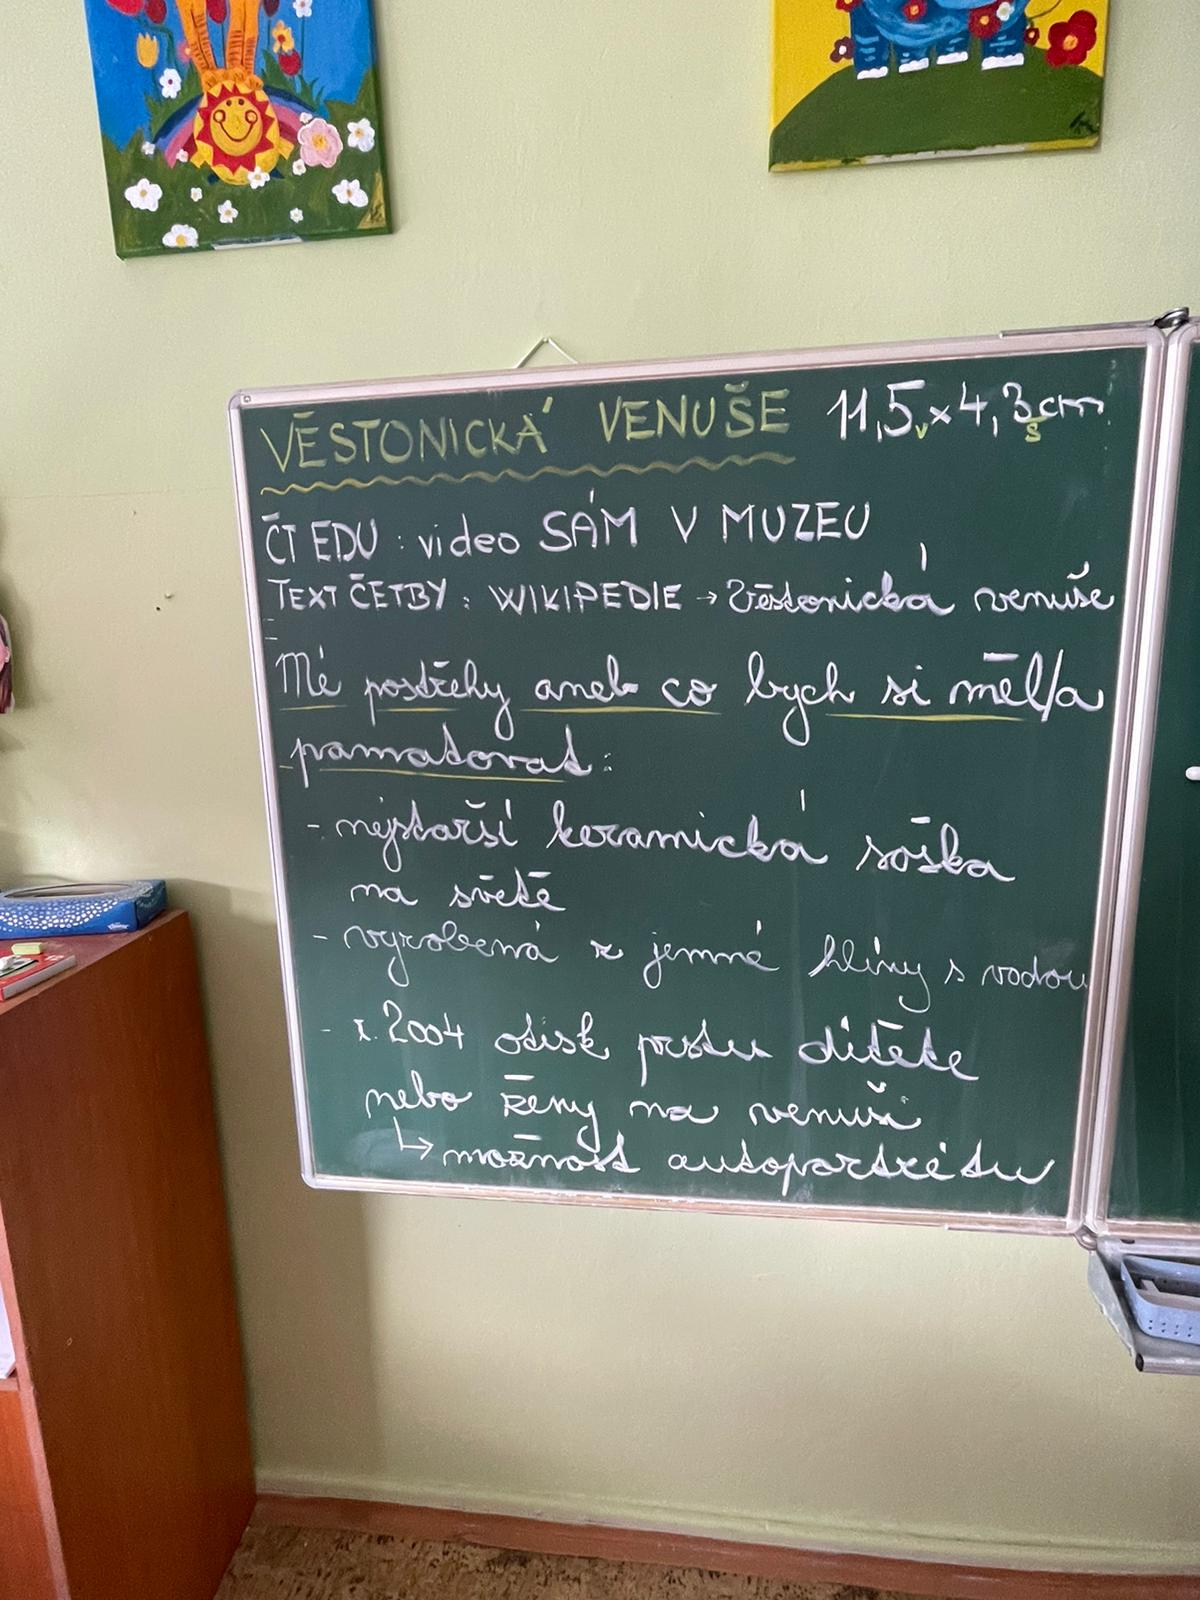 VĚSTONICKÁ VENUŠE 11,5 x 4,3 cm
v š
ČT EDU : video SÁM V MUZEU
TEXT ČETBY : WIKIPEDIE → Věstonická venuše
Mé postřehy aneb co bych si měl/a
pamatovat :
- nejstarší keramická soška
na světě
- vyrobená z jemné hlíny s vodou
- r. 2004 otisk prstu dítěte
nebo ženy na venuši
↳ možnost autoportrétu